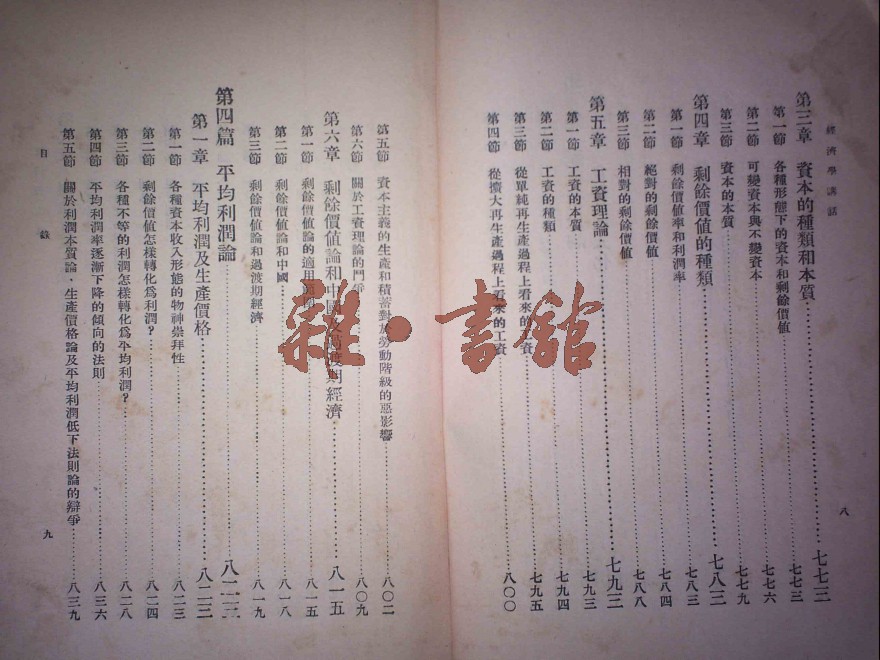 經濟學講話
八
第三章 資本的種類和本質……七七三
第一節 各種形態下的資本和剩餘價值……七七三
第二節 可變資本與不變資本……七七六
第三節 資本的本質……七七九
第四章 剩餘價值的種類……七八三
第一節 剩餘價值率和利潤率……七八三
第二節 絕對的剩餘價值……七八四
第三節 相對的剩餘價值……七八八
第五章 工資理論……七九三
第一節 工資的本質……七九三
第二節 工資的種類……七九四
第三節 從單純再生產過程上看來的工資……七九五
第四節 從擴大再生產過程上看來的工資……八〇〇
第五節 資本主義的生產和積蓄對於勞動階級的惡影響……八〇二
第六節 關於工資理論的鬥爭……八〇九
第六章 剩餘價値論和中國及過渡期經濟……八一五
第一節 剩餘價値論的適用範圍……八一五
第二節 剩餘價値論和中國……八一八
第三節 剩餘價値論和過渡期經濟……八一九
第四篇 平均利潤論……八二三
第一章 平均利潤及生產價格……八二三
第一節 各種資本收入形態的物神崇拜性……八二三
第二節 剩餘價値怎樣轉化爲利潤？……八二四
第三節 各種不等的利潤怎樣轉化爲平均利潤？……八二八
第四節 平均利潤率逐漸下降的傾向的法則……八三六
第五節 關於利潤本質論，生產價格論及平均利潤低下法則論的辯爭……八三九
目錄
九
雜·書館